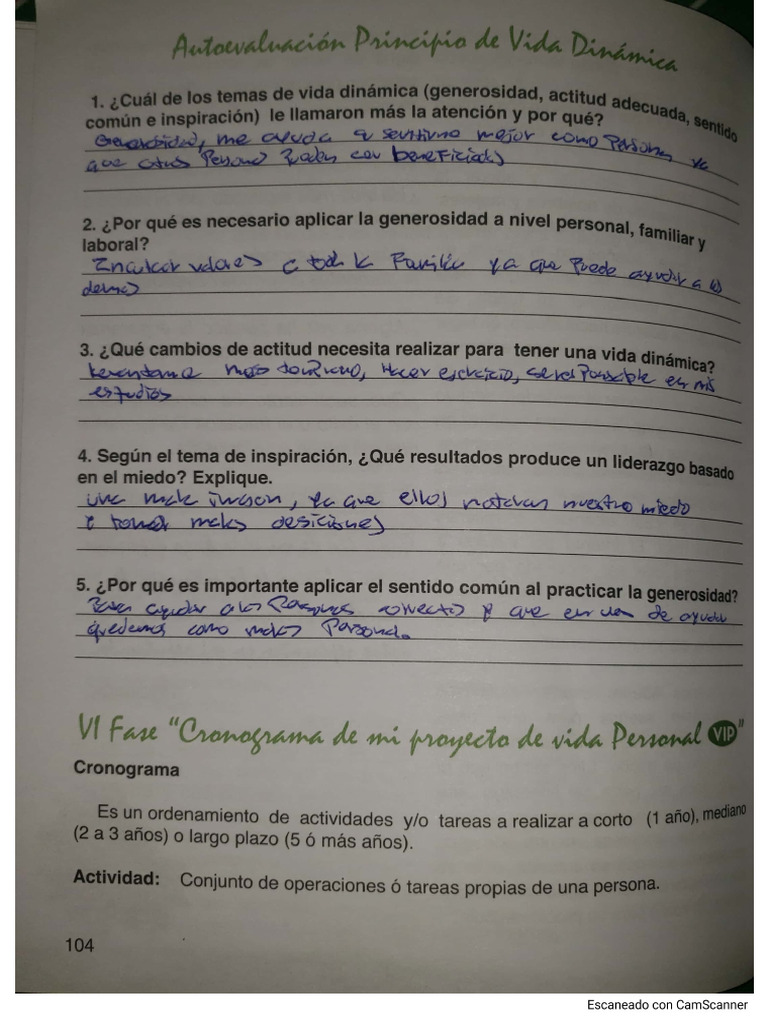 Autoevaluación Principio de Vida Dinámica
1. ¿Cuál de los temas de vida dinámica (generosidad, actitud adecuada, sentido
común e inspiración) le llamaron más la atención y por qué?
Generosidad, me ayuda a sentirme mejor como Persona ya
que otras Personas Pueden ser beneficiados
2. ¿Por qué es necesario aplicar la generosidad a nivel personal, familiar y
laboral?
Inculcar valores a toda la Familia ya que Puede ayudar a los
demas
3. ¿Qué cambios de actitud necesita realizar para tener una vida dinámica?
levantarme mas temprano, Hacer ejercicio, ser responsable en mis
estudios
4. Según el tema de inspiración, ¿Qué resultados produce un liderazgo basado
en el miedo? Explique.
una mala, ya que ellos notaran nuestro miedo
y tomar malas desiciones
5. ¿Por qué es importante aplicar el sentido común al practicar la generosidad?
Para ayudar a las Personas correctas y que en ves de ayudar
quedemos como malas Persona.
VI Fase "Cronograma de mi proyecto de vida Personal VIP"
Cronograma
Es un ordenamiento de actividades y/o tareas a realizar a corto (1 año), mediano
(2 a 3 años) o largo plazo (5 ó más años).
Actividad: Conjunto de operaciones ó tareas propias de una persona.
104
Escaneado con CamScanner